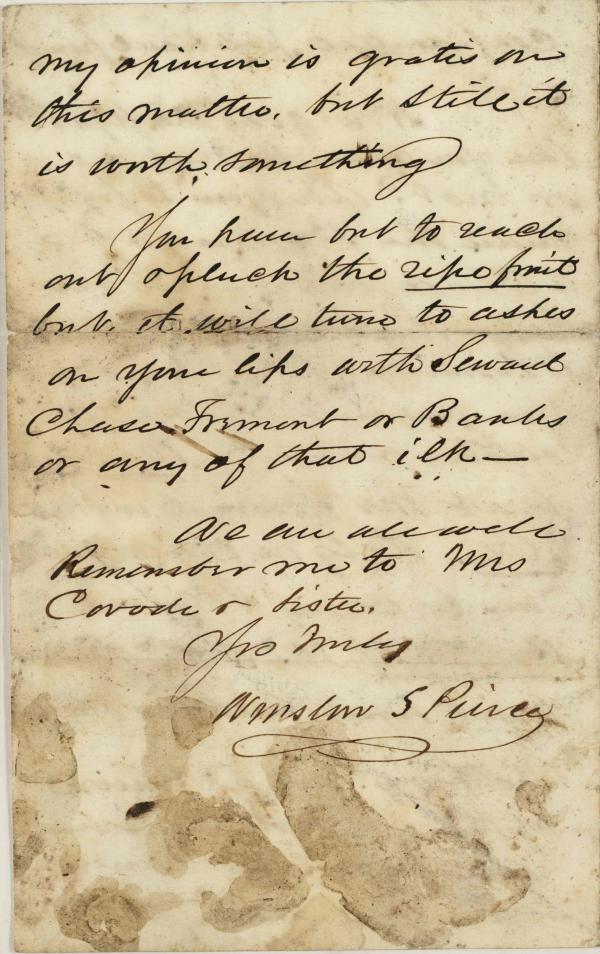 my opinion is gratis on
this matter. but still it
is worth something
You have but to reach
out & pluck the ripe fruit
but it will turn to ashes
on your lips with Seward
Chase Fremont or Banks
or any of that ilk—
We are all well
Remember me to Mrs
Covode & Sister.
Yrs Truly
Winslow S Pierce